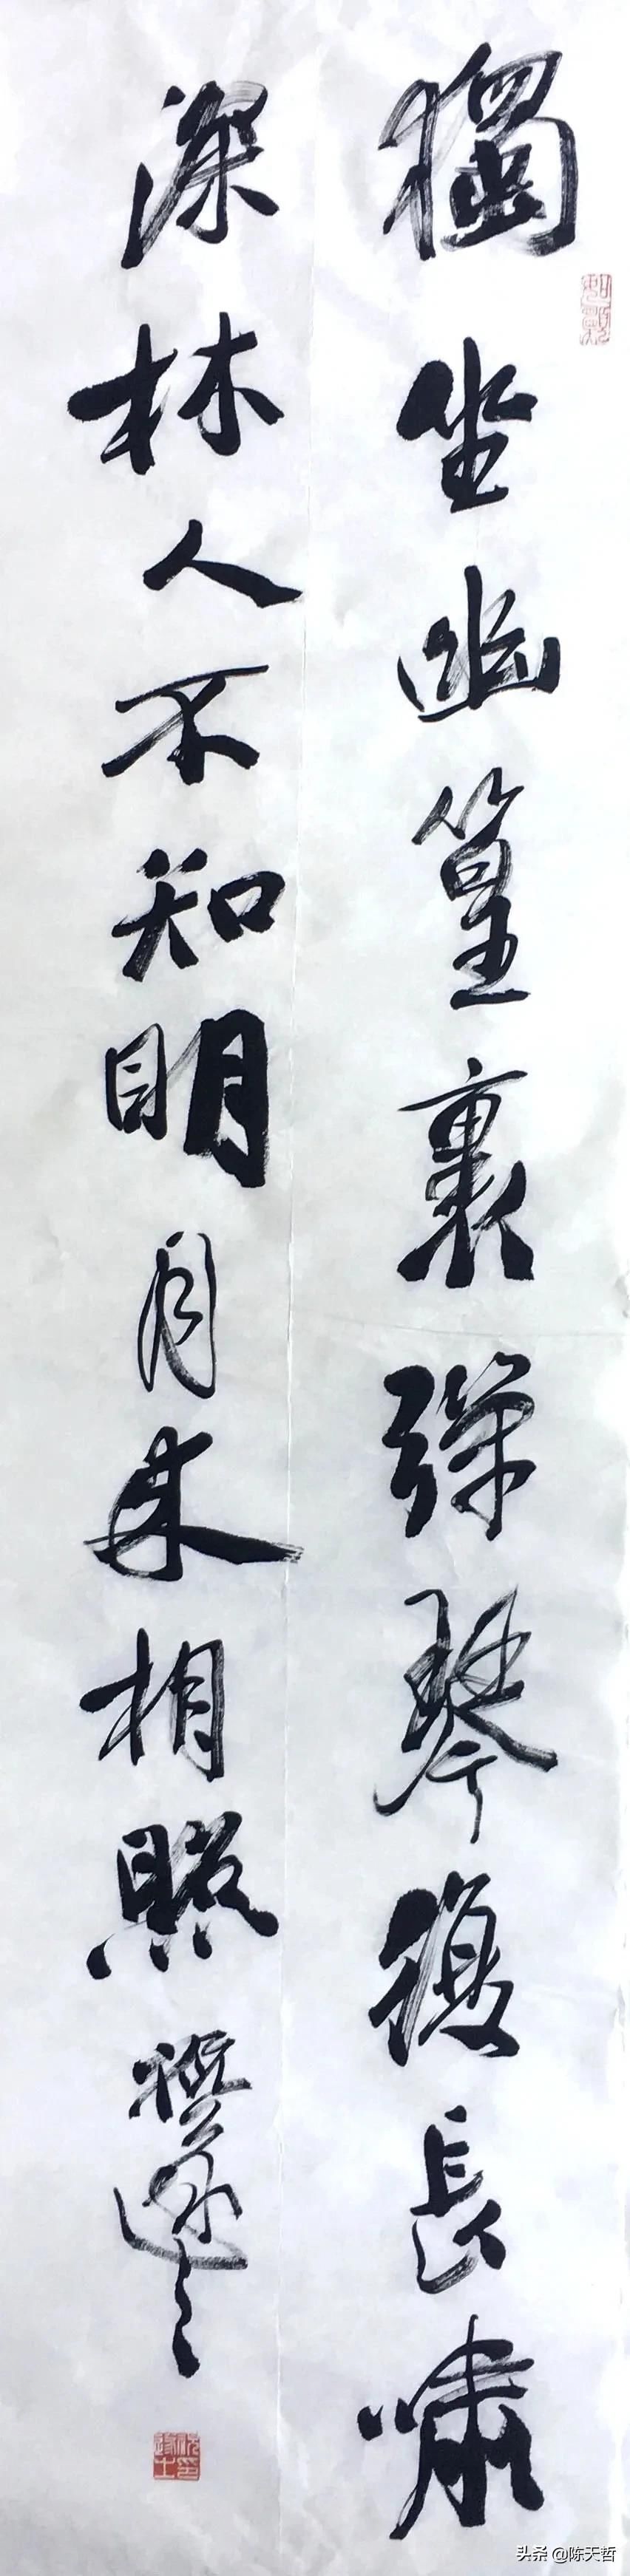 獨坐幽篁裏彈琴復長嘯
深林人不知明月来相照
头条 @陈天哲